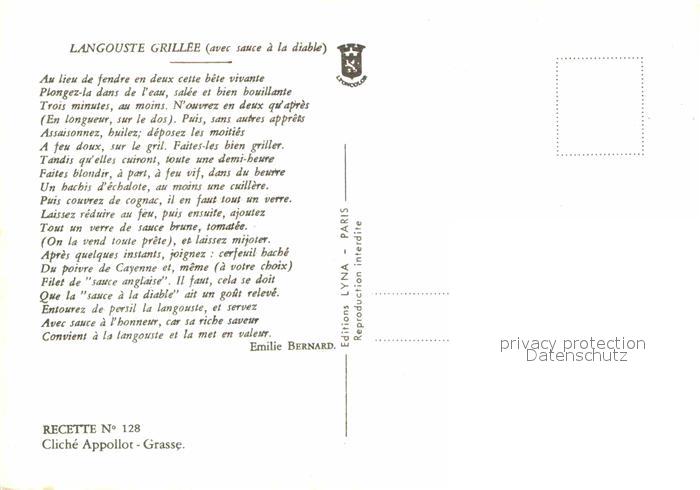 LANGOUSTE GRILLÉE (avec sauce à la diable)
LYONCOLOR
Au lieu de fendre en deux cette bête vivante
Plongez-la dans de l'eau, salée et bien bouillante
Trois minutes, au moins. N'ouvrez en deux qu'après
(En longueur, sur le dos). Puis, sans autres apprêts
Assaisonnez, huilez; déposez les moitiés
A feu doux, sur le gril. Faites-les bien griller.
Tandis qu'elles cuiront, toute une demi-heure
Faites blondir, à part, à feu vif, dans du beurre
Un hachis d'échalote, au moins une cuillère.
Puis couvrez de cognac, il en faut tout un verre.
Laissez réduire au feu, puis ensuite, ajoutez
Tout un verre de sauce brune, tomatée.
(On la vend toute prête), et laissez mijoter.
Après quelques instants, joignez : cerfeuil haché
Du poivre de Cayenne et, même (à votre choix)
Filet de "sauce anglaise". Il faut, cela se doit
Que la "sauce à la diable" ait un goût relevé.
Entourez de persil la langouste, et servez
Avec sauce à l'honneur, car sa riche saveur
Convient à la langouste et la met en valeur.
Emilie BERNARD.
Editions LYNA - PARIS
Reproduction interdite
privacy protection
Datenschutz
RECETTE N° 128
Cliché Appollot - Grasse.